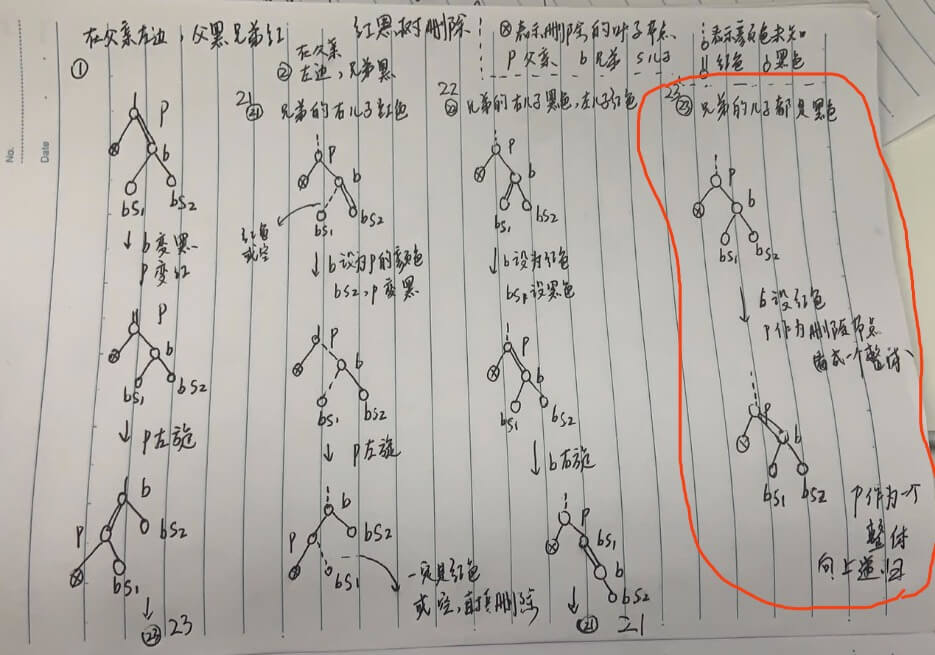 No.
Date
在父亲左边，父黑兄弟红
①
p
b
bs1
bs2
↓ b变黑
p变红
p
b
bs1
bs2
↓ p左旋
b
p
bs2
bs1
㉓ 23
红黑树删除
② 在父亲
左边，兄弟黑
21
㉑ 兄弟的右儿子红色
p
b
bs1
bs2
红色
或空
↓ b设为p的颜色
bs2，p变黑
p
b
bs1
bs2
↓ p左旋
b
p
bs2
bs1
一定是红色
或空，直接删除
ⓧ表示删除的叶子节点
p父亲 b兄弟 s儿子
22
㉒ 兄弟的右儿子黑色，左儿子红色
p
b
bs1
bs2
↓ b设为红色
bs1设黑色
p
b
bs1
bs2
↓ b右旋
p
bs1
b
bs2
㉑ 21
表示颜色未知
红色 黑色
23
㉓ 兄弟的儿子都是黑色
p
b
bs1
bs2
↓ b设红色
p作为删除节点
看成一个整体
p
b
bs1
bs2
p作为一个
整体
向上递归